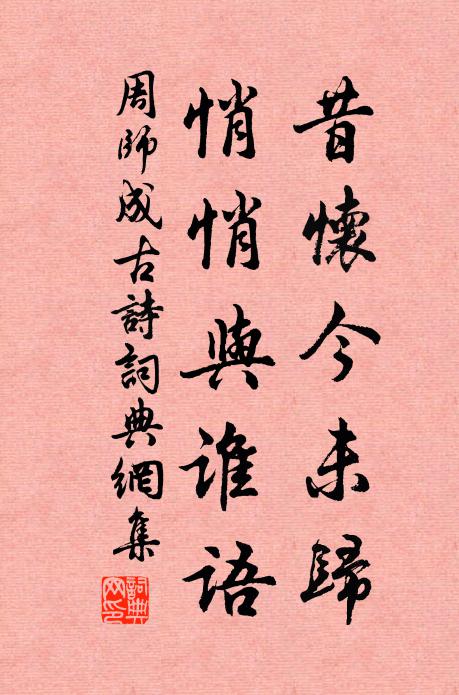 昔懷今未歸
悄悄與誰語
周師成古詩詞典網集
詞典
网印